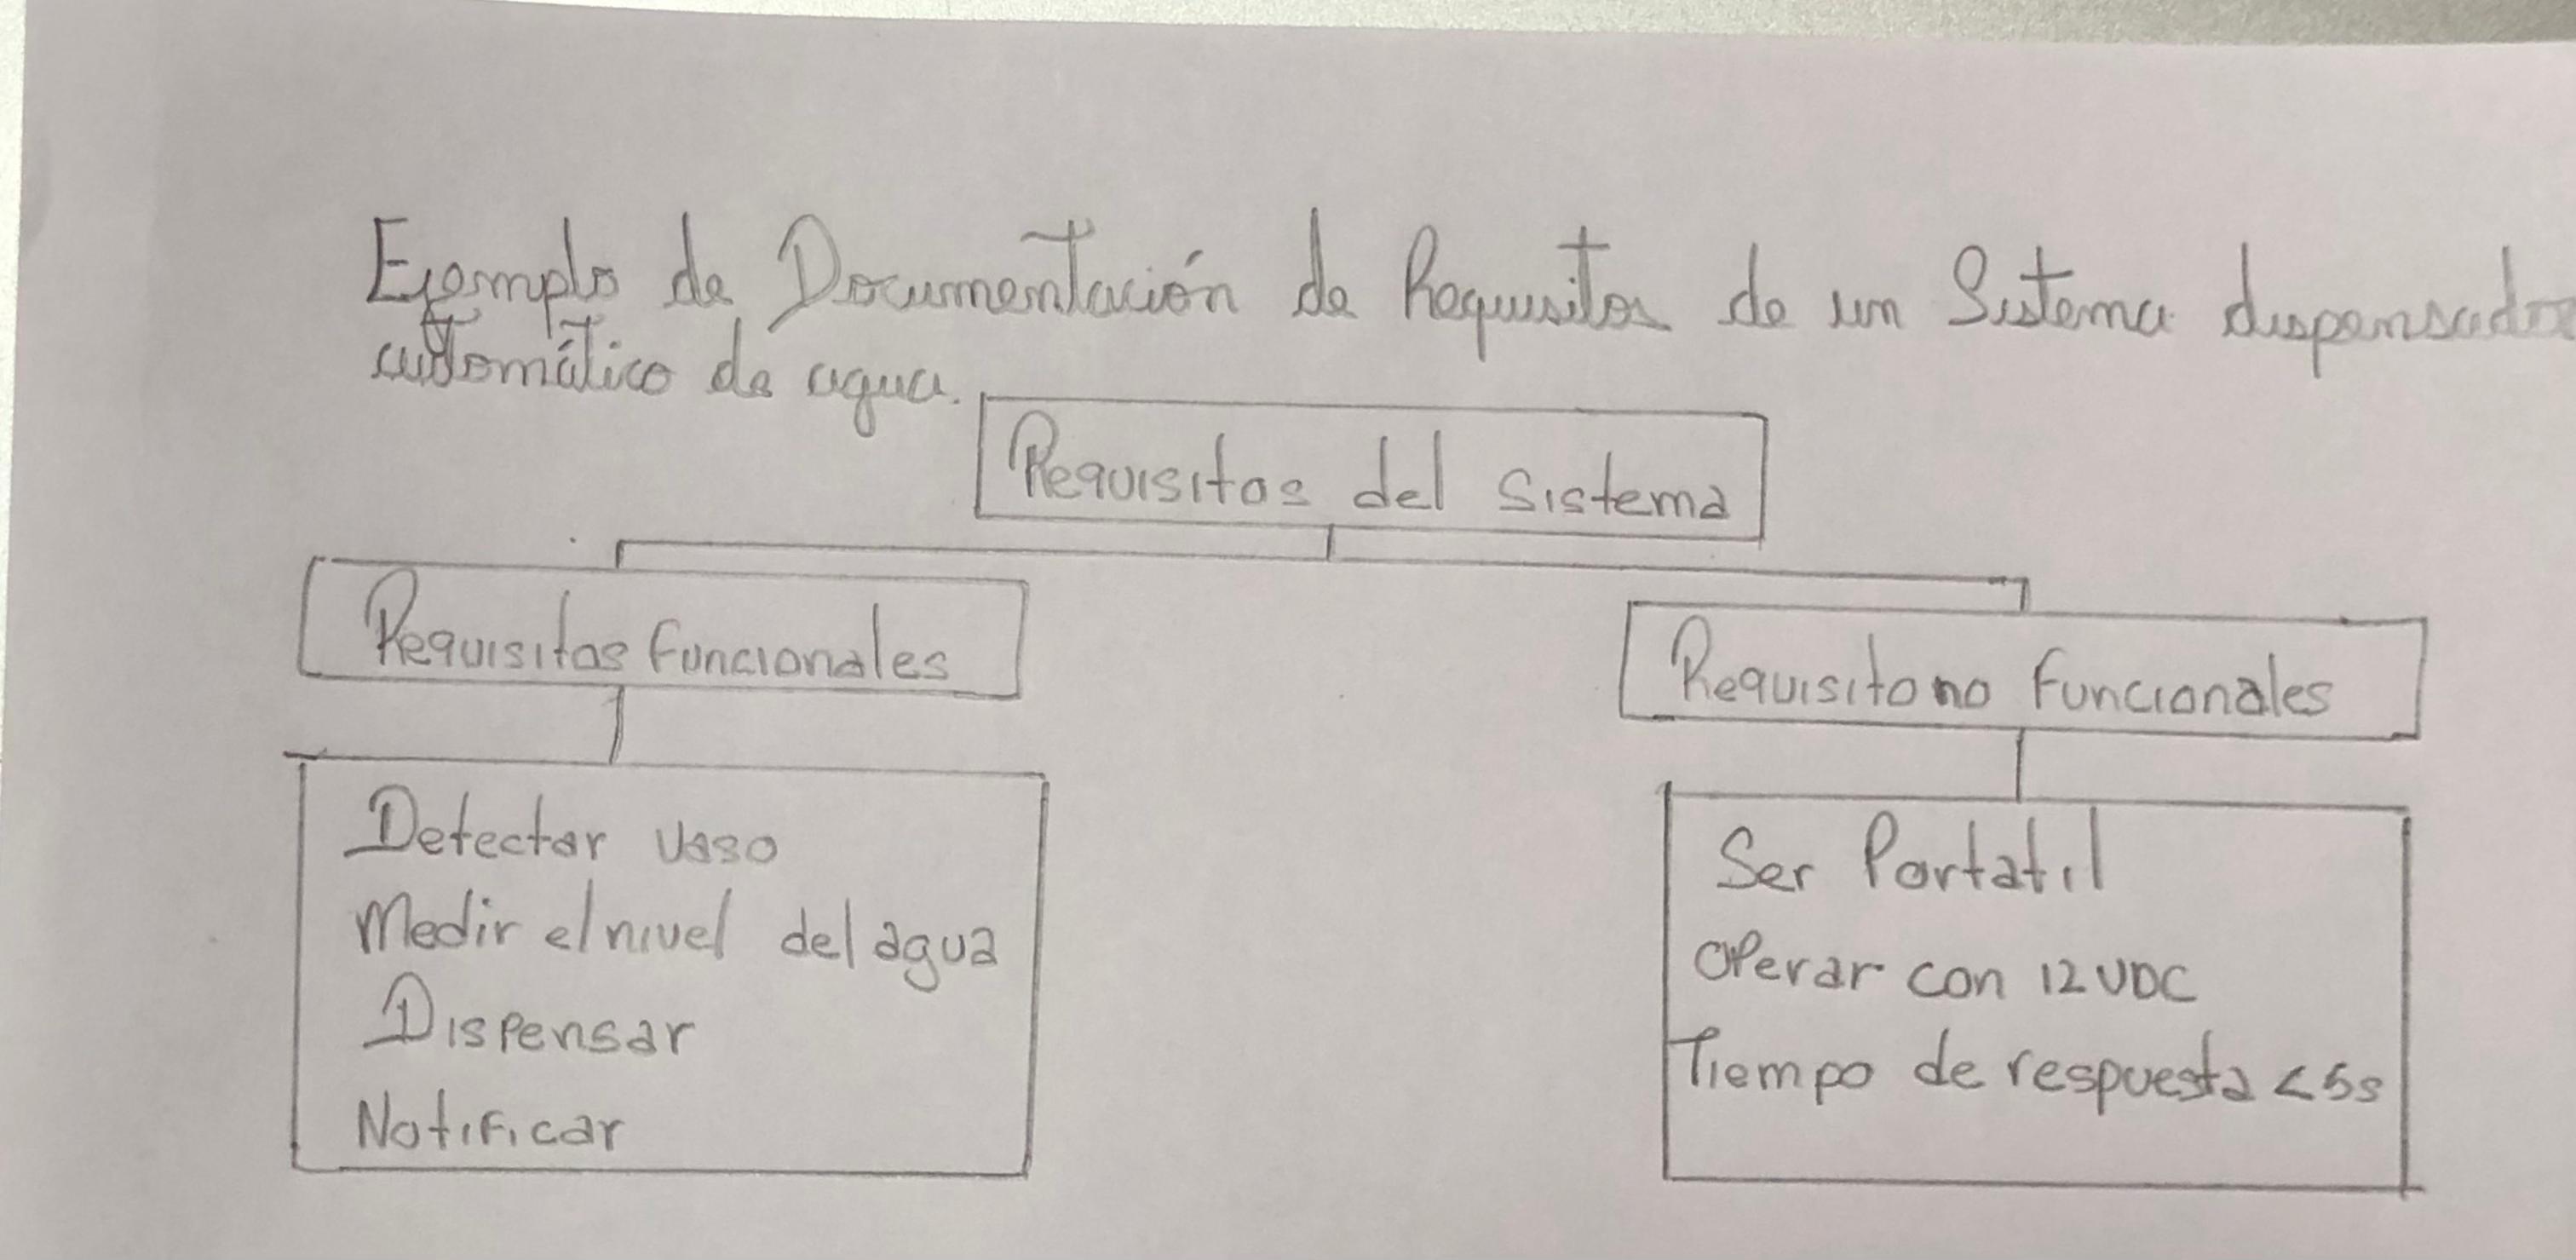 Ejemplo de Documentación de Requisitos de un Sistema dispensador
automático de agua.
Requisitos del sistema
Requisitos Funcionales
Requisito no Funcionales
Detectar vaso
Medir el nivel del agua
Dispensar
Notificar
Ser Portatil
Operar con 12VDC
Tiempo de respuesta <5s